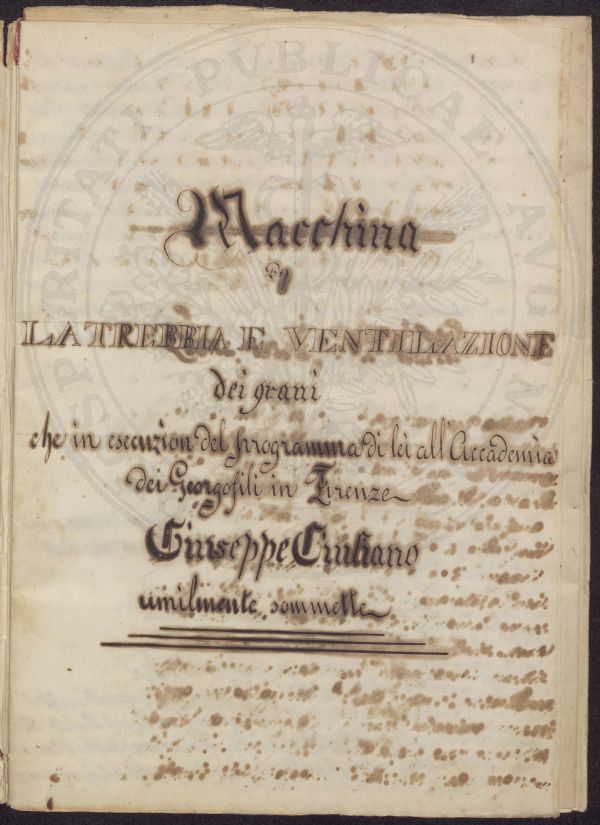 1
SPERITATI PUBLICAE AUG
Macchina
LA TREBBIA E VENTILAZIONE
dei grani
che in esecuzion del programma di lei all'Accademia
dei Georgofili in Firenze
Giuseppe Giuliano
umilmente sommette